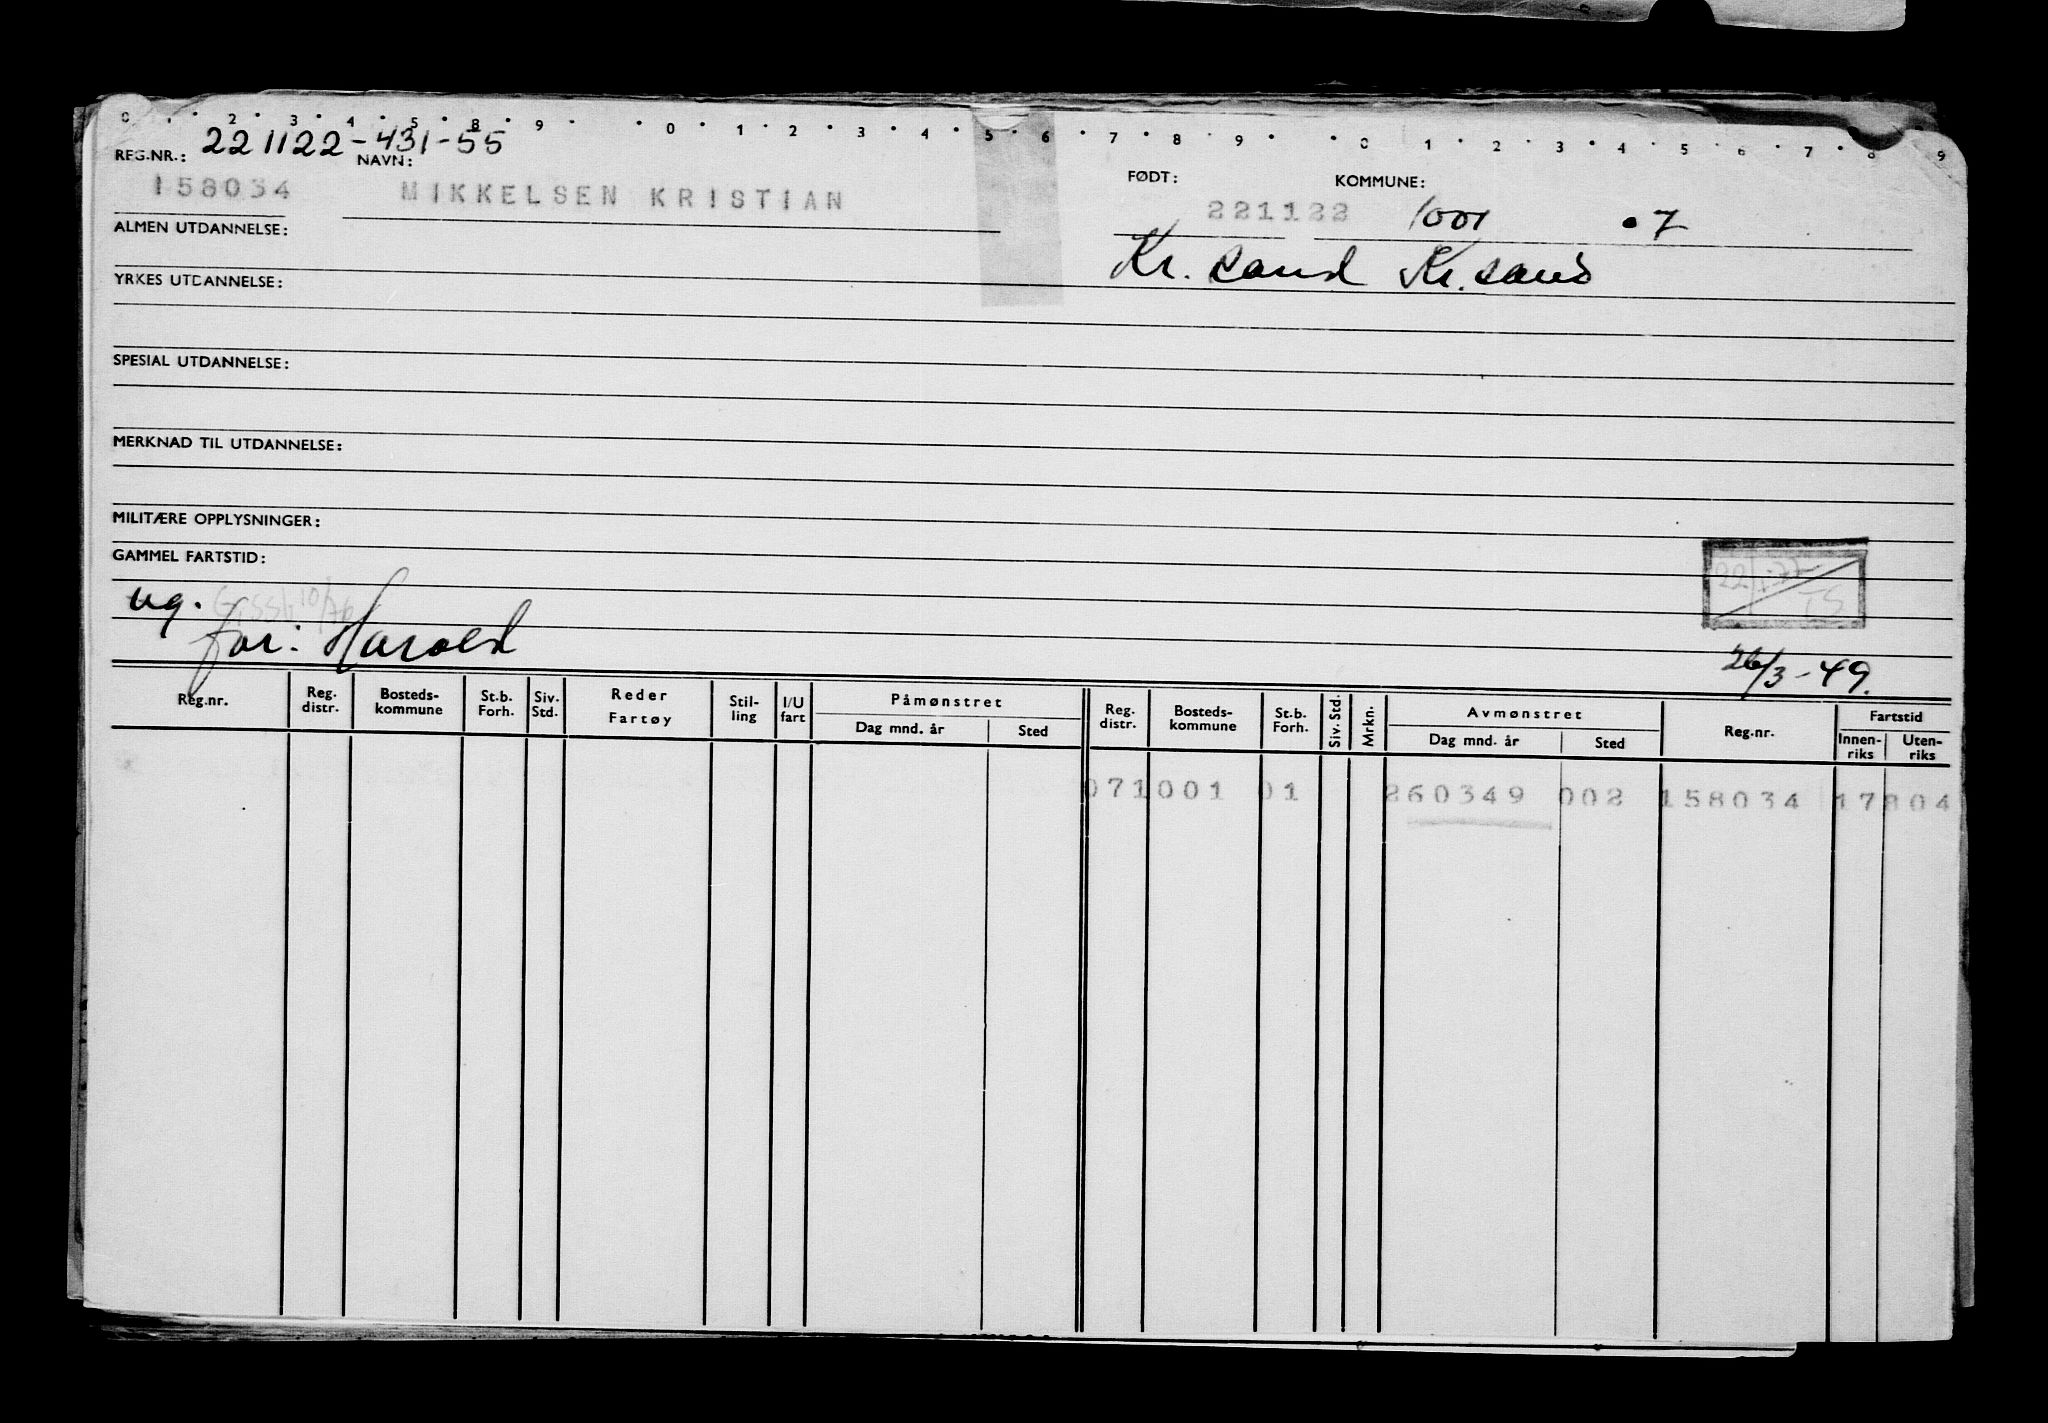 0 . . 2 . 3 . 4 . 5 . 8 . 9 . . 0 . 1 . 2 . 3 . 4 . 5 . 6 . 7 . 8 . 9 . . 0 . 1 . 2 . 3 . 4 . 5 . 6 . 7 . 8 . 9
REG.NR.: 221122-431-55 NAVN: FØDT: KOMMUNE:
158034 MIKKELSEN KRISTIAN 221122 1001 •7
ALMEN UTDANNELSE: Kr. sand Kr. sand
YRKES UTDANNELSE:
SPESIAL UTDANNELSE:
MERKNAD TIL UTDANNELSE:
MILITÆRE OPPLYSNINGER:
GAMMEL FARTSTID:
ug.
far: Harold 26/3-49.
Reg.nr. Reg. distr. Bosteds-kommune St.b. Forh. Siv. Std. Reder Fartøy Stil-ling I/U fart Påmønstret Dag mnd. år Sted Reg. distr. Bosteds-kommune St.b. Forh. Siv. Std. Mrkn. Avmønstret Dag mnd. år Sted Reg.nr. Fartstid Innen-riks Uten-riks
071001 01 260349 002 158034 17804